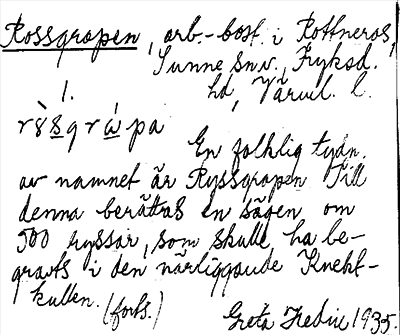 Rossgropen, arb.-bost. i Rottneros,
Sunne sn., Fryksd.
hd, Värml. l.
1.
En folklig tydn.
av namnet är Ryssgropen Till
denna berättas en sägen om
500 ryssar, som skulle ha be-
gravts i den närliggande Knekt-
kullen. (forts.)
Greta Hedin, 1935.